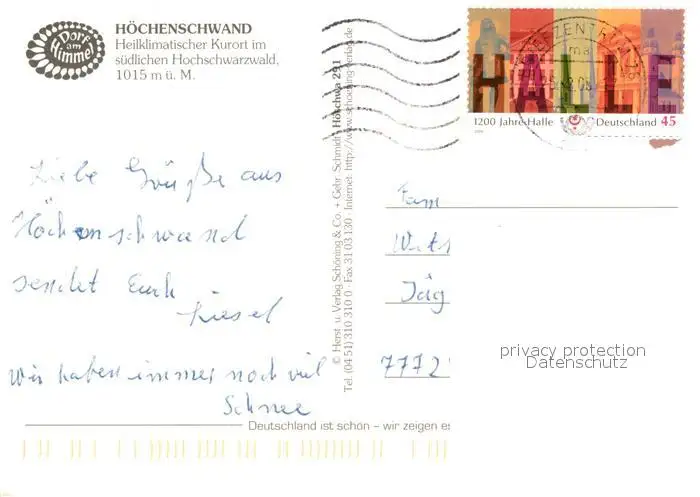 Dorf
am
Himmel
HÖCHENSCHWAND
Heilklimatischer Kurort im
südlichen Hochschwarzwald,
1015 m ü. M.
HALLE
1200 Jahre Halle
Deutschland 45
BRIEFZENTRUM
Liebe Grüße aus
Höchenschwand
sendet Euch
Liesel
Wir haben immer noch viel
Schnee
© Herst. u. Verlag Schöning & Co. + Gebr. Schmidt
Tel. (04 51) 310 310 0 · Fax 31 03 130 · Internet: http://www.schoening-verlag.de
Höschwa 291
Fam
Jäg
7772
privacy protection
Datenschutz
Deutschland ist schön – wir zeigen es